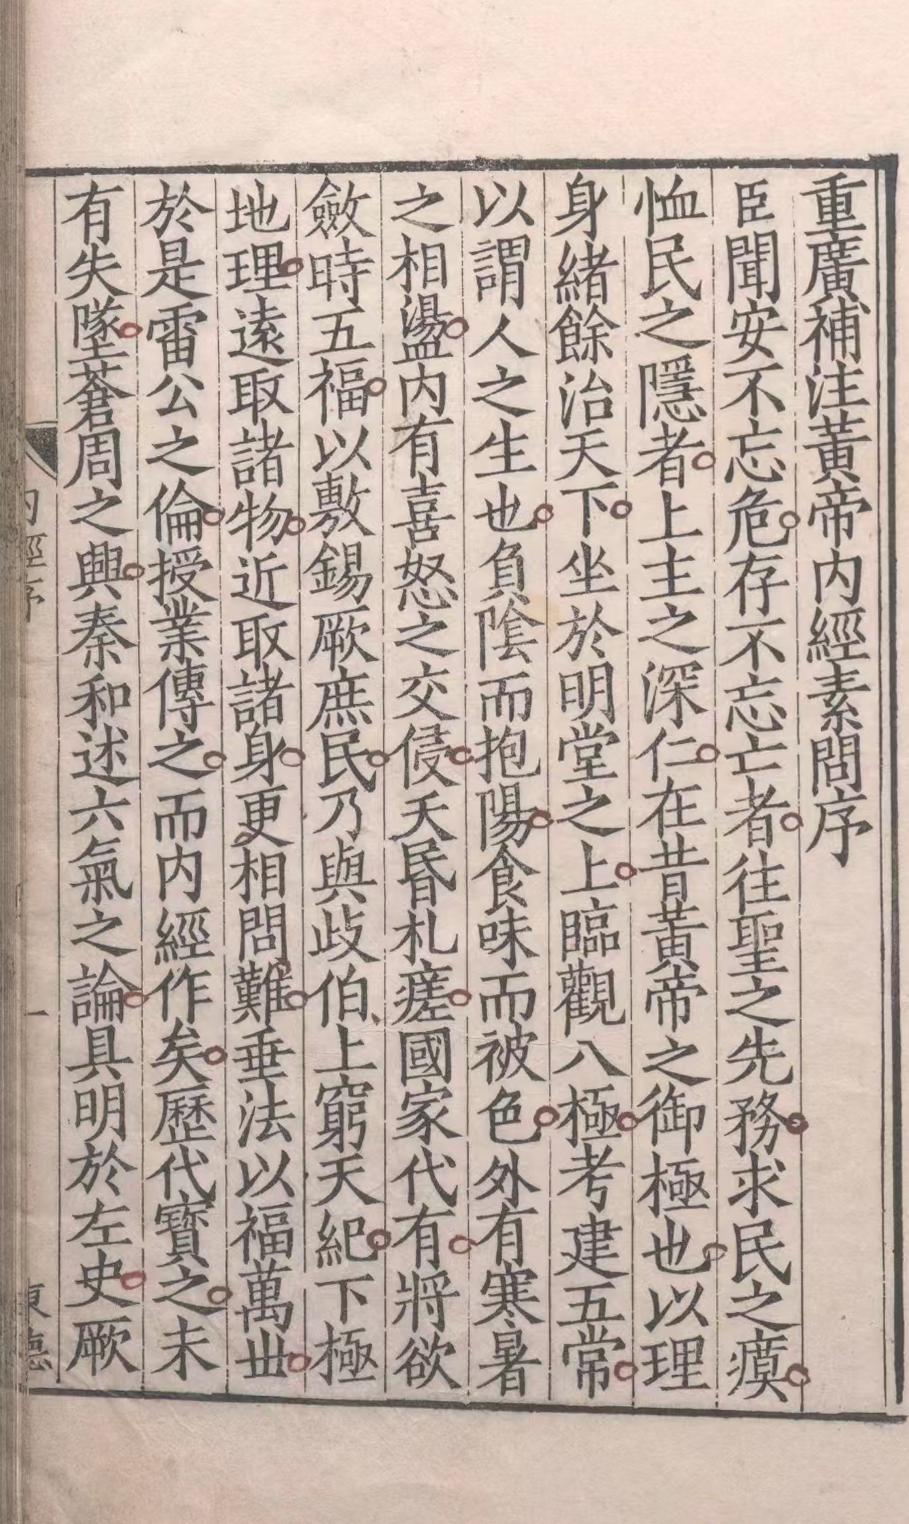 重廣補注黃帝内經素問序
臣聞安不忘危存不忘亡者往聖之先務求民之瘼
恤民之隱者上主之深仁在昔黃帝之御極也以理
身緒餘治天下坐於明堂之上臨觀八極考建五常
以謂人之生也負陰而抱陽食味而被色外有寒暑
之相盪内有喜怒之交侵夭昬札瘥國家代有將欲
斂時五福以敷錫厥庶民乃與歧伯上窮天紀下極
地理遠取諸物近取諸身更相問難垂法以福萬世
於是雷公之倫授業傳之而内經作矣歷代寳之未
有失墜蒼周之興秦和述六氣之論具明於左史厥
内經序
一
東德